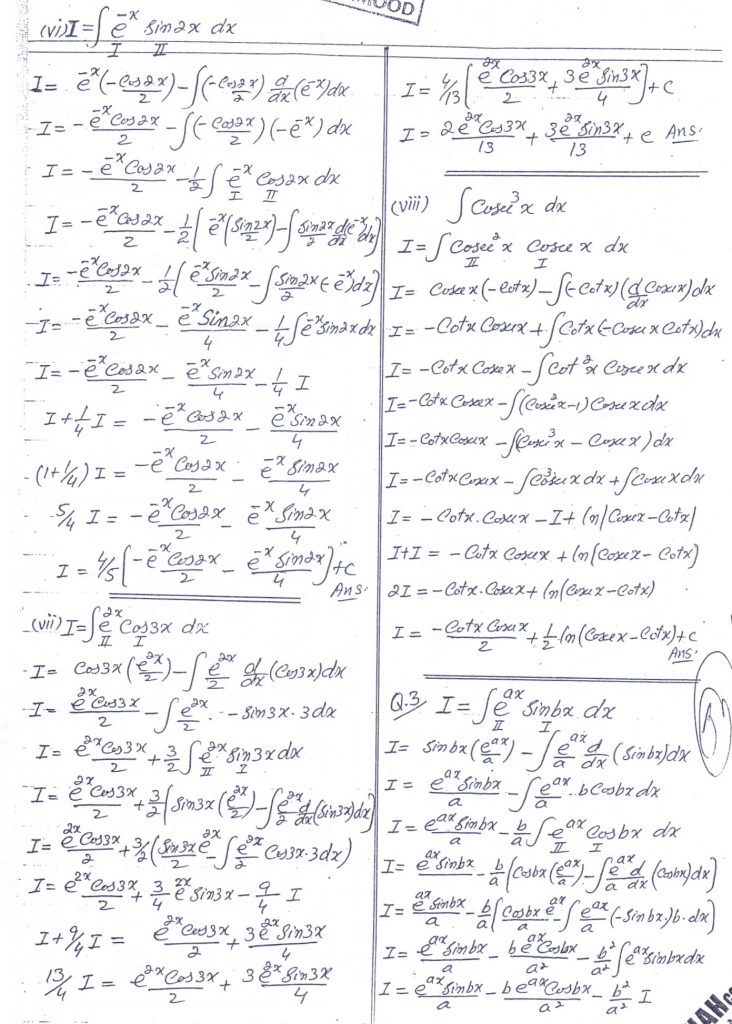 OOD
(vi) I = ∫ e^-x Sin2x dx
I II
I = e^-x (-Cos2x/2) - ∫(-Cos2x/2) d/dx (e^-x) dx
I = - e^-x Cos2x/2 - ∫(-Cos2x/2)(-e^-x) dx
I = - e^-x Cos2x/2 - 1/2 ∫ e^-x Cos2x dx
I II
I = - e^-x Cos2x/2 - 1/2 [ e^-x (Sin2x/2) - ∫ Sin2x/2 d/dx e^-x dx ]
I = - e^-x Cos2x/2 - 1/2 [ e^-x Sin2x/2 - ∫ Sin2x/2 (-e^-x) dx ]
I = - e^-x Cos2x/2 - e^-x Sin2x/4 - 1/4 ∫ e^-x Sin2x dx
I = - e^-x Cos2x/2 - e^-x Sin2x/4 - 1/4 I
I + 1/4 I = - e^-x Cos2x/2 - e^-x Sin2x/4
(1+1/4) I = - e^-x Cos2x/2 - e^-x Sin2x/4
5/4 I = - e^-x Cos2x/2 - e^-x Sin2x/4
I = 4/5 [ - e^-x Cos2x/2 - e^-x Sin2x/4 ] + C
Ans.
(vii) I = ∫ e^2x Cos3x dx
II I
I = Cos3x (e^2x/2) - ∫ e^2x/2 d/dx (Cos3x) dx
I = e^2x Cos3x/2 - ∫ e^2x/2 . - Sin3x . 3 dx
I = e^2x Cos3x/2 + 3/2 ∫ e^2x Sin3x dx
II I
I = e^2x Cos3x/2 + 3/2 [ Sin3x (e^2x/2) - ∫ e^2x/2 d/dx (Sin3x) dx ]
I = e^2x Cos3x/2 + 3/2 ( Sin3x e^2x/2 - ∫ e^2x/2 Cos3x . 3 dx )
I = e^2x Cos3x/2 + 3/4 e^2x Sin3x - 9/4 I
I + 9/4 I = e^2x Cos3x/2 + 3 e^2x Sin3x/4
13/4 I = e^2x Cos3x/2 + 3 e^2x Sin3x/4
I = 4/13 [ e^2x Cos3x/2 + 3 e^2x Sin3x/4 ] + C
I = 2 e^2x Cos3x/13 + 3 e^2x Sin3x/13 + c Ans.
(viii) ∫ Cosec^3 x dx
I = ∫ Cosec^2 x Cosec x dx
II I
I = Cosec x (-Cotx) - ∫(-Cotx)(d/dx Cosecx) dx
I = - Cotx Cosecx + ∫ Cotx (-Cosecx Cotx) dx
I = - Cotx Cosecx - ∫ Cot^2 x Cosec x dx
I = - Cotx Cosecx - ∫ (Cosec^2 x - 1) Cosecx dx
I = - Cotx Cosecx - ∫(Cosec^3 x - Cosecx) dx
I = - Cotx Cosecx - ∫ Cosec^3 x dx + ∫ Cosecx dx
I = - Cotx . Cosecx - I + ln|Cosecx - Cotx|
I + I = - Cotx Cosecx + ln(Cosecx - Cotx)
2I = - Cotx . Cosecx + ln(Cosecx - Cotx)
I = - Cotx Cosecx/2 + 1/2 ln(Cosecx - Cotx) + c
Ans.
Q.3 I = ∫ e^ax Sinbx dx
II I
I = Sinbx (e^ax/a) - ∫ e^ax/a d/dx (Sinbx) dx
I = e^ax Sinbx/a - ∫ e^ax/a . b Cosbx dx
I = e^ax Sinbx/a - b/a ∫ e^ax Cosbx dx
II I
I = e^ax Sinbx/a - b/a [ Cosbx (e^ax/a) - ∫ e^ax/a d/dx (Cosbx) dx ]
I = e^ax Sinbx/a - b/a [ Cosbx e^ax/a - ∫ e^ax/a (-Sinbx) b . dx ]
I = e^ax Sinbx/a - b e^ax Cosbx/a² - b²/a² ∫ e^ax Sinbx dx
I = e^ax Sinbx/a - b e^ax Cosbx/a² - b²/a² I